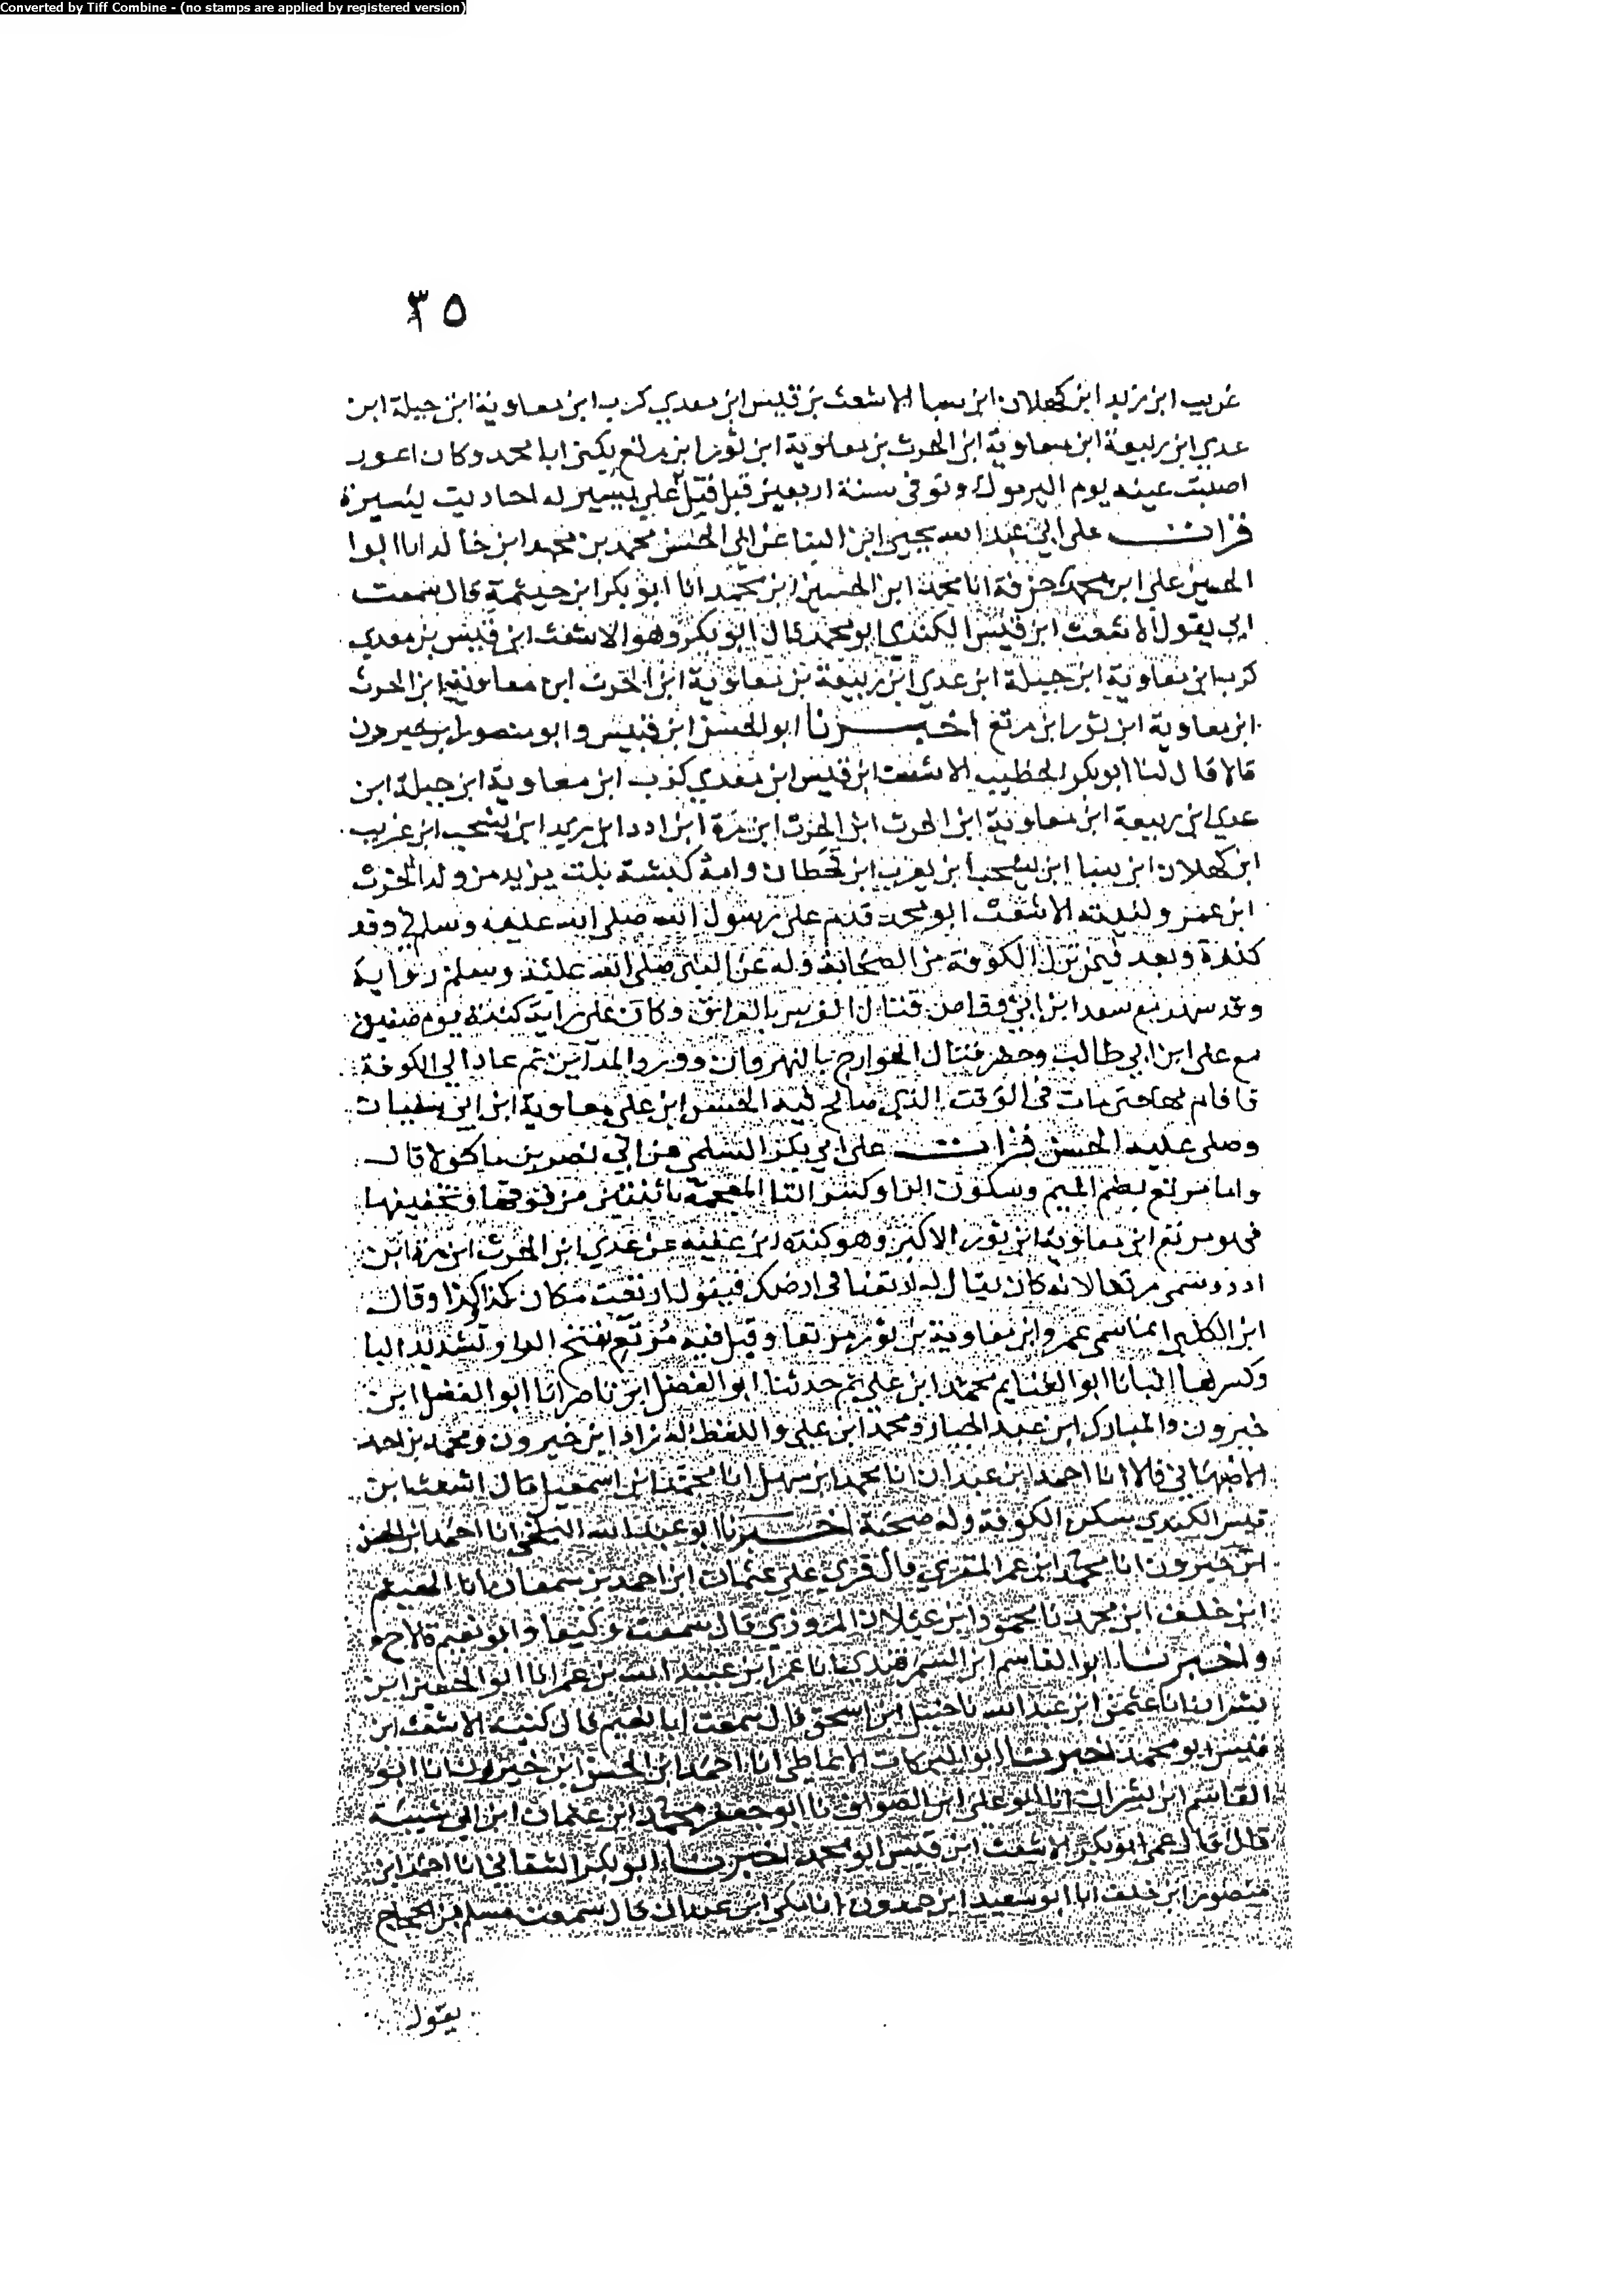 Converted by Tiff Combine - (no stamps are applied by registered version)
٣٥
غريب ابن زيد ابن كهلان ابن سبا الاشعث بن قيس ابن معدي كرب ابن معاوية ابن جبلة ابن
عدي ابن ربيعة ابن معاوية ابن الحرث بن معاوية ابن ثور ابن مرتع يكنى ابا محمد وكان اعور
اصيبت عينه يوم اليرموك وتوفى سنة اربعين قبل قتل علي بيسير له احاديث يسيرة
قرات على ابي عبد الله يحيى ابن البنا عن ابي الحسن محمد بن محمد ابن خالد انا ابوا
الحسين علي ابن محمد حزفة انا محمد ابن الحسين ابن محمد انا ابو بكر ابن خيثمة قال سمعت
ابي يقول الاشعث ابن قيس الكندي ابو محمد قال ابو بكر وهو الاشعث ابن قيس بن معدي
كرب ابن معاوية ابن جبلة ابن عدي ابن ربيعة بن معاوية ابن الحرث ابن معاوية ابن الحرث
ابن معاوية ابن ثور ابن مرتع اخبرنا ابو الحسن ابن قبيس وابو منصور ابن خيرون
قالا قال لنا ابو بكر الخطيب الاشعث ابن قيس ابن معدي كرب ابن معاوية ابن جبلة ابن
عدي ابن ربيعة ابن معاوية ابن الحرث ابن الحرث ابن مرة ابن ادد ابن يريد ابن يشجب ابن غريب
ابن كهلان ابن سبا ابن يشجب ابن يعرب ابن قحطان وامه كبشة بنت يزيد من ولد الحرث
ابن عمر وكنيته الاشعث ابو محمد قدم على رسول الله صلى الله عليه وسلم في وفد
كندة ويعد فيمن نزل الكوفة من الصحابة وله عن النبي صلى الله عليه وسلم رواية
وقد شهد مع سعد ابن ابي وقاص قتال الفرس بالعراق وكان على راية كندة يوم صفين
مع علي ابن ابي طالب وحضر قتال الخوارج بالنهروان وورد المداين ثم عاد الى الكوفة
فاقام بها حتى مات في الوقت الذي صالح فيه الحسن ابن علي معاوية ابن ابي سفيان
وصلى عليه الحسن قرات على ابي بكر السلمي عن ابي نصر بن ماكولا قال
واما مرتع بضم الميم وسكون الرا وكسر التا المعجمة باثنتين من فوقها وتخفيفها
فهو مرتع ابن معاوية ابن ثور الاكبر وهو كندة ابن عفير عن عدي ابن الحرث ابن مرة ابن
ادد وسمى مرتعا لانه كان يقال له ارتعنا في ارضك فيقول ارتعت مكان كذا وكذا وقال
ابن الكلبي انما سمى عمرو ابن معاوية بن ثور مرتعا وقيل فيه مرتع بفتح الرا وتشديد التا
وكسرها انبانا ابوا الغنايم محمد ابن علي ثم حدثنا ابوا الفضل ابن ناصر انا ابوا الفضل ابن
خيرون والمبارك ابن عبد الجبار ومحمد ابن علي واللفظ له زاد ابن خيرون ومحمد بن احمد
الاصبهاني قالا انا احمد ابن عبدان انا محمد ابن سهل انا محمد ابن اسمعيل قال اشعث ابن
قيس الكندي سكن الكوفة وله صحبة اخبرنا ابو عبد الله البلخي انا احمد ابن الحسن
ابن خيرون انا محمد ابن عمر المقري قال قري على عثمان ابن احمد بن سمعان انا الهيثم
ابن خلف ابن محمد نا محمود ابن غيلان المروزي قال سمعت وكيعا وابو نعيم قالا ح
واخبرنا ابوا القاسم ابن السمرقندي انا عمر ابن عبيد الله بن عمر انا ابوا الحسين ابن
بشران انا عثمن ابن عبد الله نا حنبل ابن اسحق قال سمعت ابا نعيم قال كنية الاشعث ابن
قيس ابو محمد اخبرنا ابو البركات الانماطي انا احمد ابن الحسن ابن خيرون انا ابو
القاسم ابن بشران انا ابو علي ابن الصواف نا ابو جعفر محمد ابن عثمان ابن ابي شيبة
قال قال عمي ابو بكر الاشعث ابن قيس ابو محمد اخبرنا ابو بكر الشقاني انا احمد ابن
منصور ابن خلف انا ابو سعيد ابن حمدون انا مكي ابن عبدان قال سمعت مسلم بن الحجاج
يقول